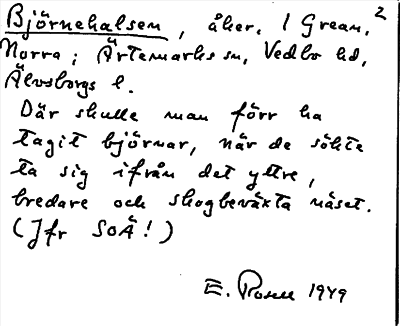 Björnehalsen, åker, 1 Grean, 2
Norra; Ärtemarks sn, Vedbo hd,
Älvsborgs l.
Där skulle man förr ha
tagit björnar, när de sökte
ta sig ifrån det yttre,
bredare och skogbeväxta näset.
(Jfr SOÄ!)
E. Rosell 1949